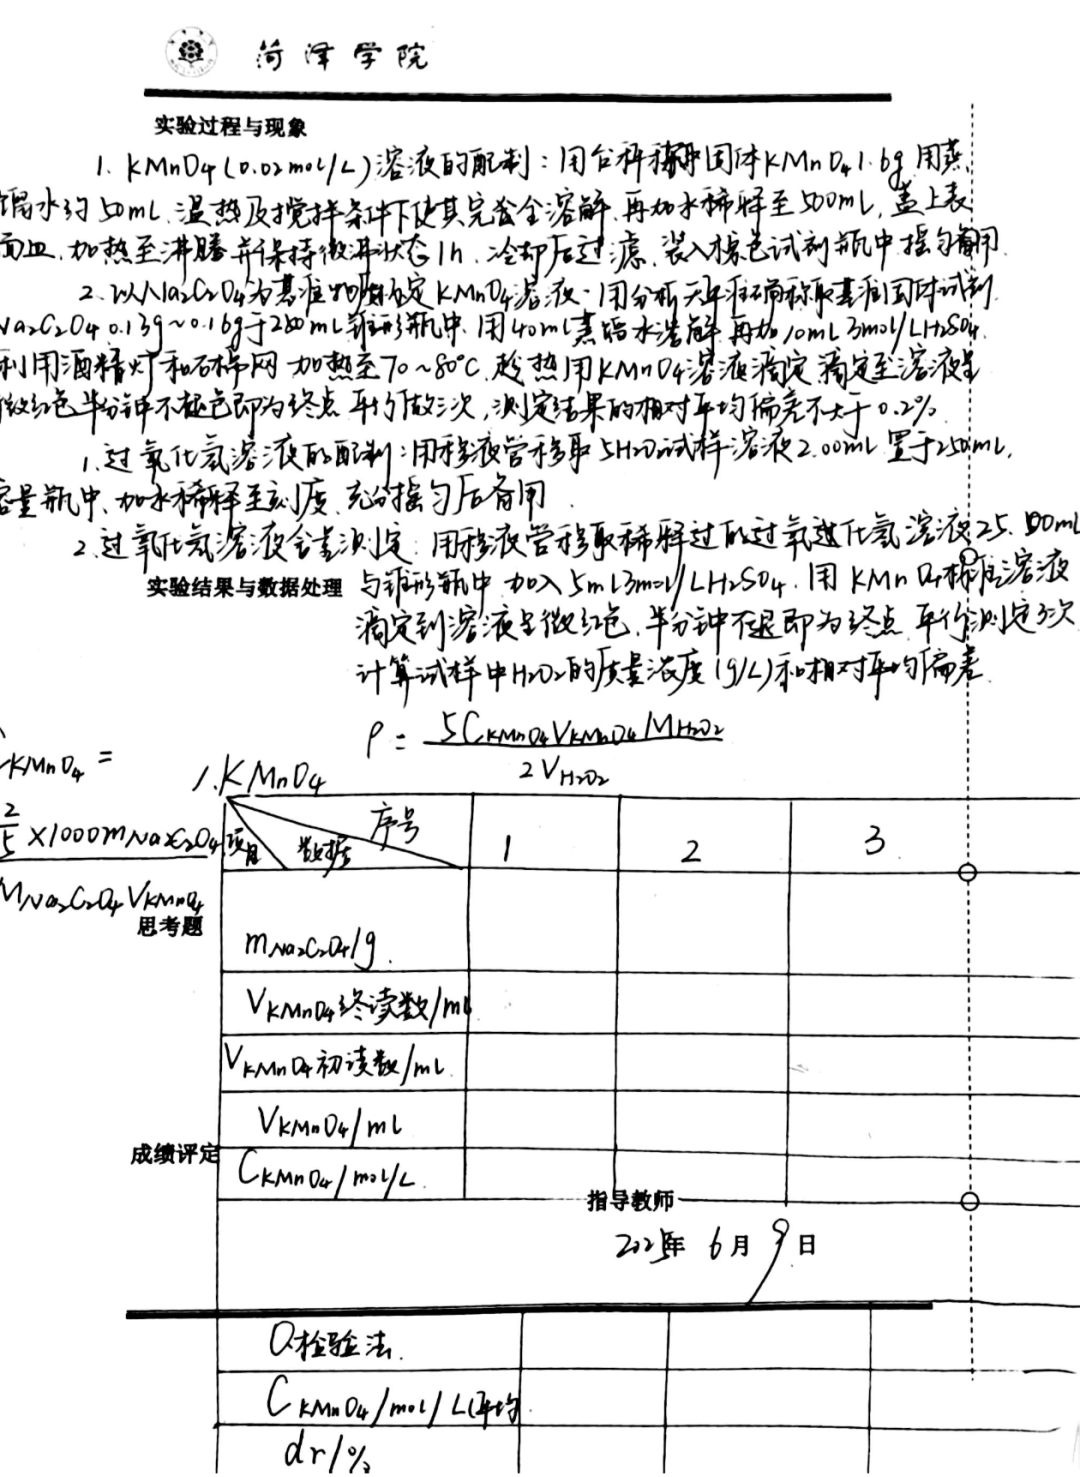 菏泽学院
实验过程与现象
1. KMnO4(0.02mol/L)溶液的配制：用台秤称取固体KMnO4 1.6g 用蒸
馏水约50mL.温热及搅拌条件下使其完全溶解.再加水稀释至500mL,盖上表
面皿.加热至沸腾并保持微沸状态1h.冷却后过滤.装入棕色试剂瓶中摇匀备用
2.以Na2C2O4为基准物质标定KMnO4溶液.用分析天平准确称取基准固体试剂
Na2C2O4 0.13g~0.16g于250mL锥形瓶中.用40mL蒸馏水溶解再加10mL 3mol/LH2SO4.
利用酒精灯和石棉网加热至70~80℃.趁热用KMnO4溶液滴定滴定至溶液呈
微红色半分钟不褪色即为终点平行做3次,测定结果的相对平均偏差不大于0.2%
1.过氧化氢溶液的配制:用移液管移取5H2O2试样溶液2.00mL置于250mL,
容量瓶中、加水稀释至刻度.充分摇匀后备用
2.过氧化氢溶液含量测定:用移液管移取稀释过的过氧化氢溶液25.00mL
实验结果与数据处理 与锥形瓶中 加入5mL3mol/LH2SO4.用KMnO4标准溶液
滴定到溶液呈微红色.半分钟不退即为终点 平行测定3次
计算试样中H2O2的质量浓度(g/L)和相对平均偏差.
ρ = 5CKMnO4VKMnO4MH2O2
2VH2O2
CKMnO4 =
2/5 ×1000mNa2C2O4
MNa2C2O4VKMnO4
思考题
1.KMnO4
序号
数据
项目
1 2 3
mNa2C2O4/g.
VKMnO4终读数/mL
VKMnO4初读数/mL
VKMnO4/mL
成绩评定
CKMnO4/mol/L
指导教师
2025年 6月9日
Q检验法.
CKMnO4/mol/L(平均
dr/%